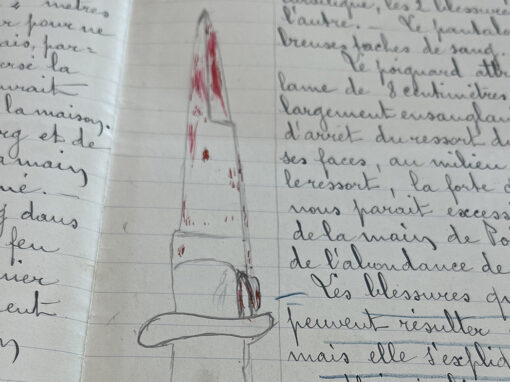 2 mètres
r pour ne
ais, par=
ersé la
urait
la maison.
rg et de
a main
né. —
dans
feu
nier
ent
les 2 blessures
l'autre. — Le pantalo
breuses taches de sang.
Le poignard attr
lame de 8 centimètres
largement ensanglan
d'arrêt du ressort du
ses faces, au milieu
le ressort, la forte
nous parait excess
de la main de Poi
de l'abondance de
Les blessures qu
peuvent résulter
mais elle s'expliq